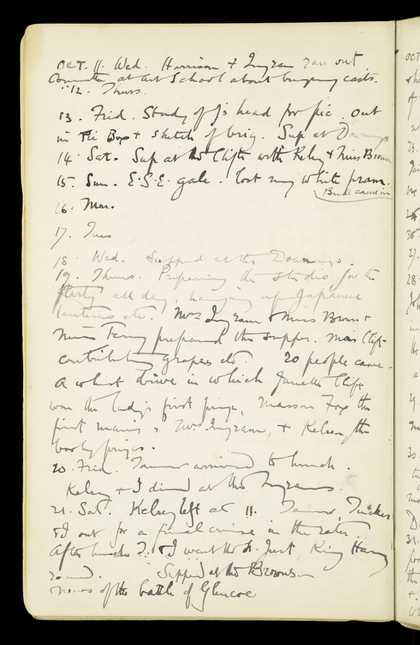 OCT. 11. Wed. Harrison & Ingram ran out
Committee at Art School about buying casts.
" 12. Thurs.
13. Frid. Study of J's head for pic out
in the Boys & sketch of brig. Sup at Downings
14. Sat. Sup at the Clifts with Kelsey & Miss Brown
15. Sun. E.S.E. gale. lost my white pram.
16. Mon.
17. Tues
18. Wed. Supped at the Downings.
19. Thurs. Preparing the studio for the
party all day, hanging up Japanese
lanterns etc. Mrs Ingram & Miss Brown &
Miss prepared the supper. Mrs Clift
contributing grapes etc 20 people came.
A whist drive in which Janette Clift
won the lady's first prize, Masson Fox the
first man's & Mrs Ingram, & Kelsey the
booby prizes.
20. Frid. Tanner arrived to lunch.
Kelsey & I dined at the Ingrams.
21. Sat. Kelsey left at 11. Tanner, Tuckers
& I out for a final cruise in the
After lunch T. & I went to St. Just, King Harry
round. Supped at the Browns
news of the battle of Glencoe